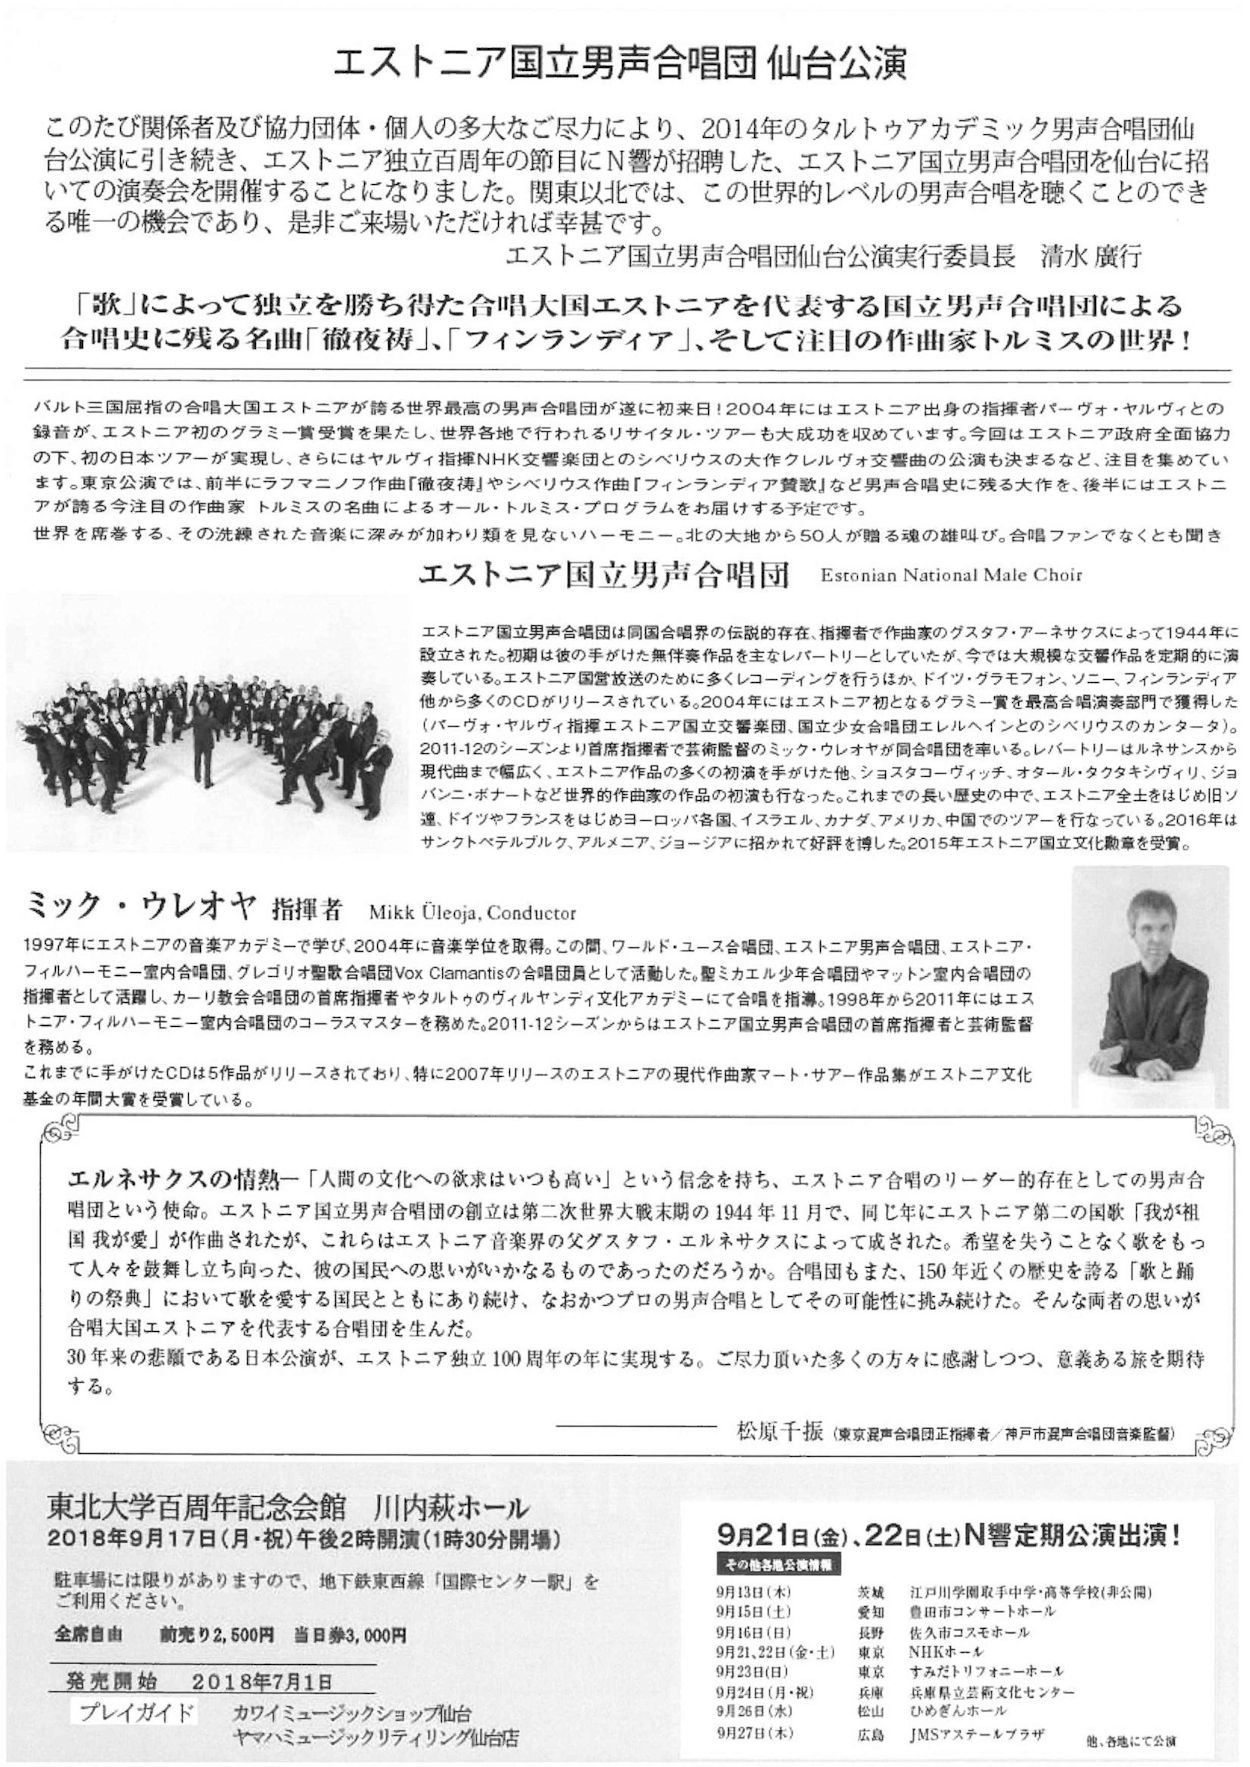 エストニア国立男声合唱団 仙台公演
このたび関係者及び協力団体・個人の多大なご尽力により、2014年のタルトゥアカデミック男声合唱団仙
台公演に引き続き、エストニア独立百周年の節目にN響が招聘した、エストニア国立男声合唱団を仙台に招
いての演奏会を開催することになりました。関東以北では、この世界的レベルの男声合唱を聴くことのでき
る唯一の機会であり、是非ご来場いただければ幸甚です。
エストニア国立男声合唱団仙台公演実行委員長　清水 廣行
「歌」によって独立を勝ち得た合唱大国エストニアを代表する国立男声合唱団による
合唱史に残る名曲「徹夜祷」、「フィンランディア」、そして注目の作曲家トルミスの世界！
バルト三国屈指の合唱大国エストニアが誇る世界最高の男声合唱団が遂に初来日！2004年にはエストニア出身の指揮者パーヴォ・ヤルヴィとの
録音が、エストニア初のグラミー賞受賞を果たし、世界各地で行われるリサイタル・ツアーも大成功を収めています。今回はエストニア政府全面協力
の下、初の日本ツアーが実現し、さらにはヤルヴィ指揮NHK交響楽団とのシベリウスの大作クレルヴォ交響曲の公演も決まるなど、注目を集めてい
ます。東京公演では、前半にラフマニノフ作曲『徹夜祷』やシベリウス作曲『フィンランディア賛歌』など男声合唱史に残る大作を、後半にはエストニ
アが誇る今注目の作曲家 トルミスの名曲によるオール・トルミス・プログラムをお届けする予定です。
世界を席巻する、その洗練された音楽に深みが加わり類を見ないハーモニー。北の大地から50人が贈る魂の雄叫び。合唱ファンでなくとも聞き
エストニア国立男声合唱団　Estonian National Male Choir
エストニア国立男声合唱団は同国合唱界の伝説的存在、指揮者で作曲家のグスタフ・アーネサクスによって1944年に
設立された。初期は彼の手がけた無伴奏作品を主なレパートリーとしていたが、今では大規模な交響作品を定期的に演
奏している。エストニア国営放送のために多くレコーディングを行うほか、ドイツ・グラモフォン、ソニー、フィンランディア
他から多くのCDがリリースされている。2004年にはエストニア初となるグラミー賞を最高合唱演奏部門で獲得した
（パーヴォ・ヤルヴィ指揮エストニア国立交響楽団、国立少女合唱団エレルヘインとのシベリウスのカンタータ）。
2011-12のシーズンより首席指揮者で芸術監督のミック・ウレオヤが同合唱団を率いる。レパートリーはルネサンスから
現代曲まで幅広く、エストニア作品の多くの初演を手がけた他、ショスタコーヴィッチ、オタール・タクタキシヴィリ、ジョ
バンニ・ボナートなど世界的作曲家の作品の初演も行なった。これまでの長い歴史の中で、エストニア全土をはじめ旧ソ
連、ドイツやフランスをはじめヨーロッパ各国、イスラエル、カナダ、アメリカ、中国でのツアーを行なっている。2016年は
サンクトペテルブルク、アルメニア、ジョージアに招かれて好評を博した。2015年エストニア国立文化勲章を受賞。
ミック・ウレオヤ 指揮者　Mikk Üleoja, Conductor
1997年にエストニアの音楽アカデミーで学び、2004年に音楽学位を取得。この間、ワールド・ユース合唱団、エストニア男声合唱団、エストニア・
フィルハーモニー室内合唱団、グレゴリオ聖歌合唱団Vox Clamantisの合唱団員として活動した。聖ミカエル少年合唱団やマットン室内合唱団の
指揮者として活躍し、カーリ教会合唱団の首席指揮者やタルトゥのヴィルヤンディ文化アカデミーにて合唱を指導。1998年から2011年にはエス
トニア・フィルハーモニー室内合唱団のコーラスマスターを務めた。2011-12シーズンからはエストニア国立男声合唱団の首席指揮者と芸術監督
を務める。
これまでに手がけたCDは5作品がリリースされており、特に2007年リリースのエストニアの現代作曲家マート・サアー作品集がエストニア文化
基金の年間大賞を受賞している。
エルネサクスの情熱―「人間の文化への欲求はいつも高い」という信念を持ち、エストニア合唱のリーダー的存在としての男声合
唱団という使命。エストニア国立男声合唱団の創立は第二次世界大戦末期の1944年11月で、同じ年にエストニア第二の国歌「我が祖
国 我が愛」が作曲されたが、これらはエストニア音楽界の父グスタフ・エルネサクスによって成された。希望を失うことなく歌をもっ
て人々を鼓舞し立ち向った、彼の国民への思いがいかなるものであったのだろうか。合唱団もまた、150年近くの歴史を誇る「歌と踊
りの祭典」において歌を愛する国民とともにあり続け、なおかつプロの男声合唱としてその可能性に挑み続けた。そんな両者の思いが
合唱大国エストニアを代表する合唱団を生んだ。
30年来の悲願である日本公演が、エストニア独立100周年の年に実現する。ご尽力頂いた多くの方々に感謝しつつ、意義ある旅を期待
する。
松原千振（東京混声合唱団正指揮者／神戸市混声合唱団音楽監督）
東北大学百周年記念会館　川内萩ホール
2018年9月17日（月・祝）午後2時開演（1時30分開場）
駐車場には限りがありますので、地下鉄東西線「国際センター駅」を
ご利用ください。
全席自由　前売り2,500円　当日券3,000円
発売開始　2018年7月1日
プレイガイド　カワイミュージックショップ仙台
ヤマハミュージックリティリング仙台店
9月21日（金）、22日（土）N響定期公演出演！
その他各地公演情報
9月13日（木）　茨城　江戸川学園取手中学・高等学校（非公開）
9月15日（土）　愛知　豊田市コンサートホール
9月16日（日）　長野　佐久市コスモホール
9月21、22日（金・土）　東京　NHKホール
9月23日（日）　東京　すみだトリフォニーホール
9月24日（月・祝）　兵庫　兵庫県立芸術文化センター
9月26日（水）　松山　ひめぎんホール
9月27日（木）　広島　JMSアステールプラザ　他、各地にて公演